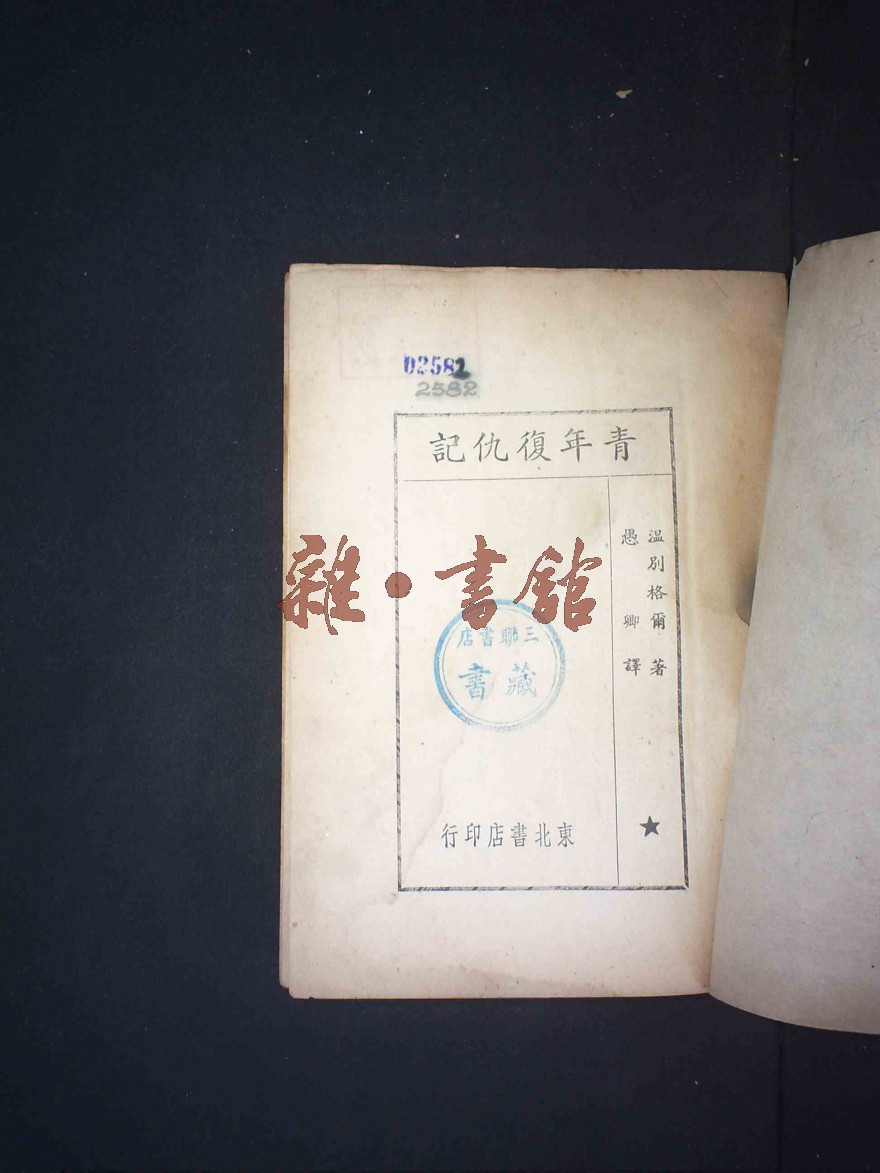 02582
2582
青年復仇記
溫別格爾 著
愚卿 譯
雜·書館
三聯書店
藏書
東北書店印行
★